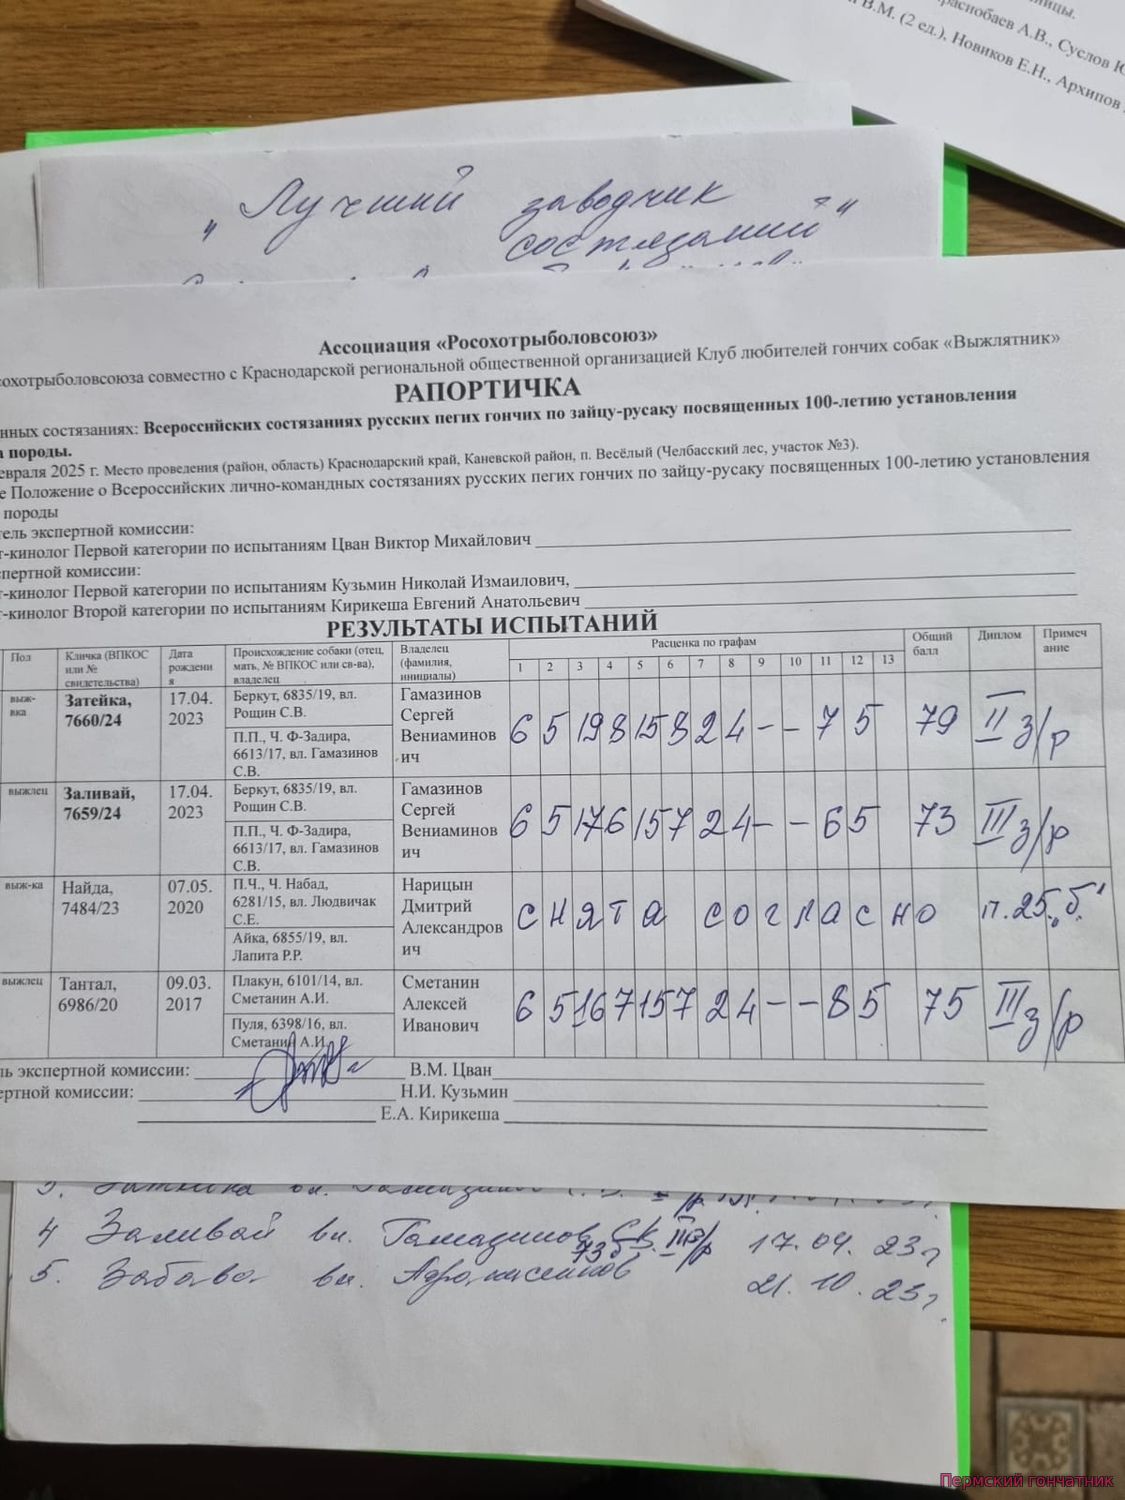 ницы.
раснобаев А.В., Суслов Ю
В.М. (2 ед.), Новиков Е.Н., Архипов
„Лучший заводчик
состязаний"
Ассоциация «Росохотрыболовсоюз»
сохотрыболовсоюза совместно с Краснодарской региональной общественной организацией Клуб любителей гончих собак «Выжлятник»
РАПОРТИЧКА
нных состязаниях: Всероссийских состязаниях русских пегих гончих по зайцу-русаку посвященных 100-летию установления
а породы.
евраля 2025 г. Место проведения (район, область) Краснодарский край, Каневской район, п. Весёлый (Челбасский лес, участок №3).
е Положение о Всероссийских лично-командных состязаниях русских пегих гончих по зайцу-русаку посвященных 100-летию установления
породы
тель экспертной комиссии:
т-кинолог Первой категории по испытаниям Цван Виктор Михайлович
спертной комиссии:
т-кинолог Первой категории по испытаниям Кузьмин Николай Измаилович,
т-кинолог Второй категории по испытаниям Кирикеша Евгений Анатольевич
РЕЗУЛЬТАТЫ ИСПЫТАНИЙ
Пол Кличка (ВПКОС или № свидетельства) Дата рождения Происхождение собаки (отец, мать, № ВПКОС или св-ва), владелец Владелец (фамилия, инициалы) Расценка по графам Общий балл Диплом Примечание
1 2 3 4 5 6 7 8 9 10 11 12 13
выж-вка Затейка, 7660/24 17.04.2023 Беркут, 6835/19, вл. Рощин С.В. Гамазинов Сергей Вениаминович 6 5 19 8 15 8 2 4 - - 7 5 79 II з/р
П.П., Ч. Ф-Задира, 6613/17, вл. Гамазинов С.В.
выжлец Заливай, 7659/24 17.04.2023 Беркут, 6835/19, вл. Рощин С.В. Гамазинов Сергей Вениаминович 6 5 17 6 15 7 2 4 - - 6 5 73 III з/р
П.П., Ч. Ф-Задира, 6613/17, вл. Гамазинов С.В.
выж-ка Найда, 7484/23 07.05.2020 П.Ч., Ч. Набад, 6281/15, вл. Людвичак С.Е. Нарицын Дмитрий Александрович снята согласно п.25 „б"
Айка, 6855/19, вл. Лапита Р.Р.
выжлец Тантал, 6986/20 09.03.2017 Плакун, 6101/14, вл. Сметанин А.И. Сметанин Алексей Иванович 6 5 16 7 15 7 2 4 - - 8 5 75 III з/р
Пуля, 6398/16, вл. Сметанин А.И.
ль экспертной комиссии: В.М. Цван
ертной комиссии: Н.И. Кузьмин
Е.А. Кирикеша
4 Заливай вл. Гамазинов С.В. III з/р 17.04.23г
73б
5. Забава вл. 21.10.23г
Пермский гончатник